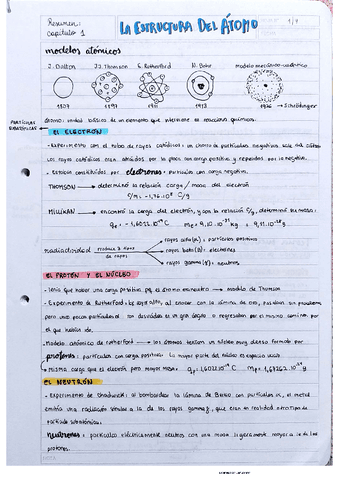 Resumen:
Capítulo 1
LA ESTRUCTURA DEL ÁTOMO
1/4
modelos atómicos
J. Dalton
JJ. Thomson
E. Rutherford
N. Bohr
Modelo mecano-cuántico
1907
1911
1913
1926 → Schrödinger
PARTÍCULAS
SUBATÓMICAS
átomo: unidad básica de un elemento que interviene en reacciones químicas.
EL ELECTRÓN
· Experimento con el tubo de rayos catódicos: un chorro de partículas negativas sale del cátodo
Los rayos catódicos eran atraídos por la placa con carga positiva y repelidos por la negativa.
constituidos por electrones: partículas con carga negativa.
THOMSON → determinó la relación carga/masa del electrón
C/m = -1,76·10⁸ C/g
MILLIKAN → encontró la carga del electrón, y con la relación C/g, determinó su masa:
radiactividad produce 3 tipos de rayos
rayos alfa (α): partículas positivas
rayos beta (β): electrones
rayos gamma (γ): neutros
EL PROTÓN Y EL NÚCLEO
· Tenía que haber una carga positiva pq el átomo es neutro → modelo de Thomson
· Experimento de Rutherford: los rayos alfa, al chocar con la lámina de oro, pasaban sin problema
pero unos pocos partículas eran desviados en un gran ángulo o regresaban por el mismo camino por
el que habían ido.
· Modelo atómico de Rutherford → los átomos tienen un núcleo muy denso formado por
protones: partículas con carga positiva. La mayor parte del átomo es espacio vacío.
misma carga que el electrón pero mayor masa.
EL NEUTRÓN
· Experimento de Chadwick: al bombardear la lámina de Berilio con partículas α, el metal
emitía una radiación similar a la de los rayos gamma γ, que eran en realidad otro tipo de
partícula subatómica:
neutrones: partículas eléctricamente neutras con una masa ligeramente mayor a la de los
protones.